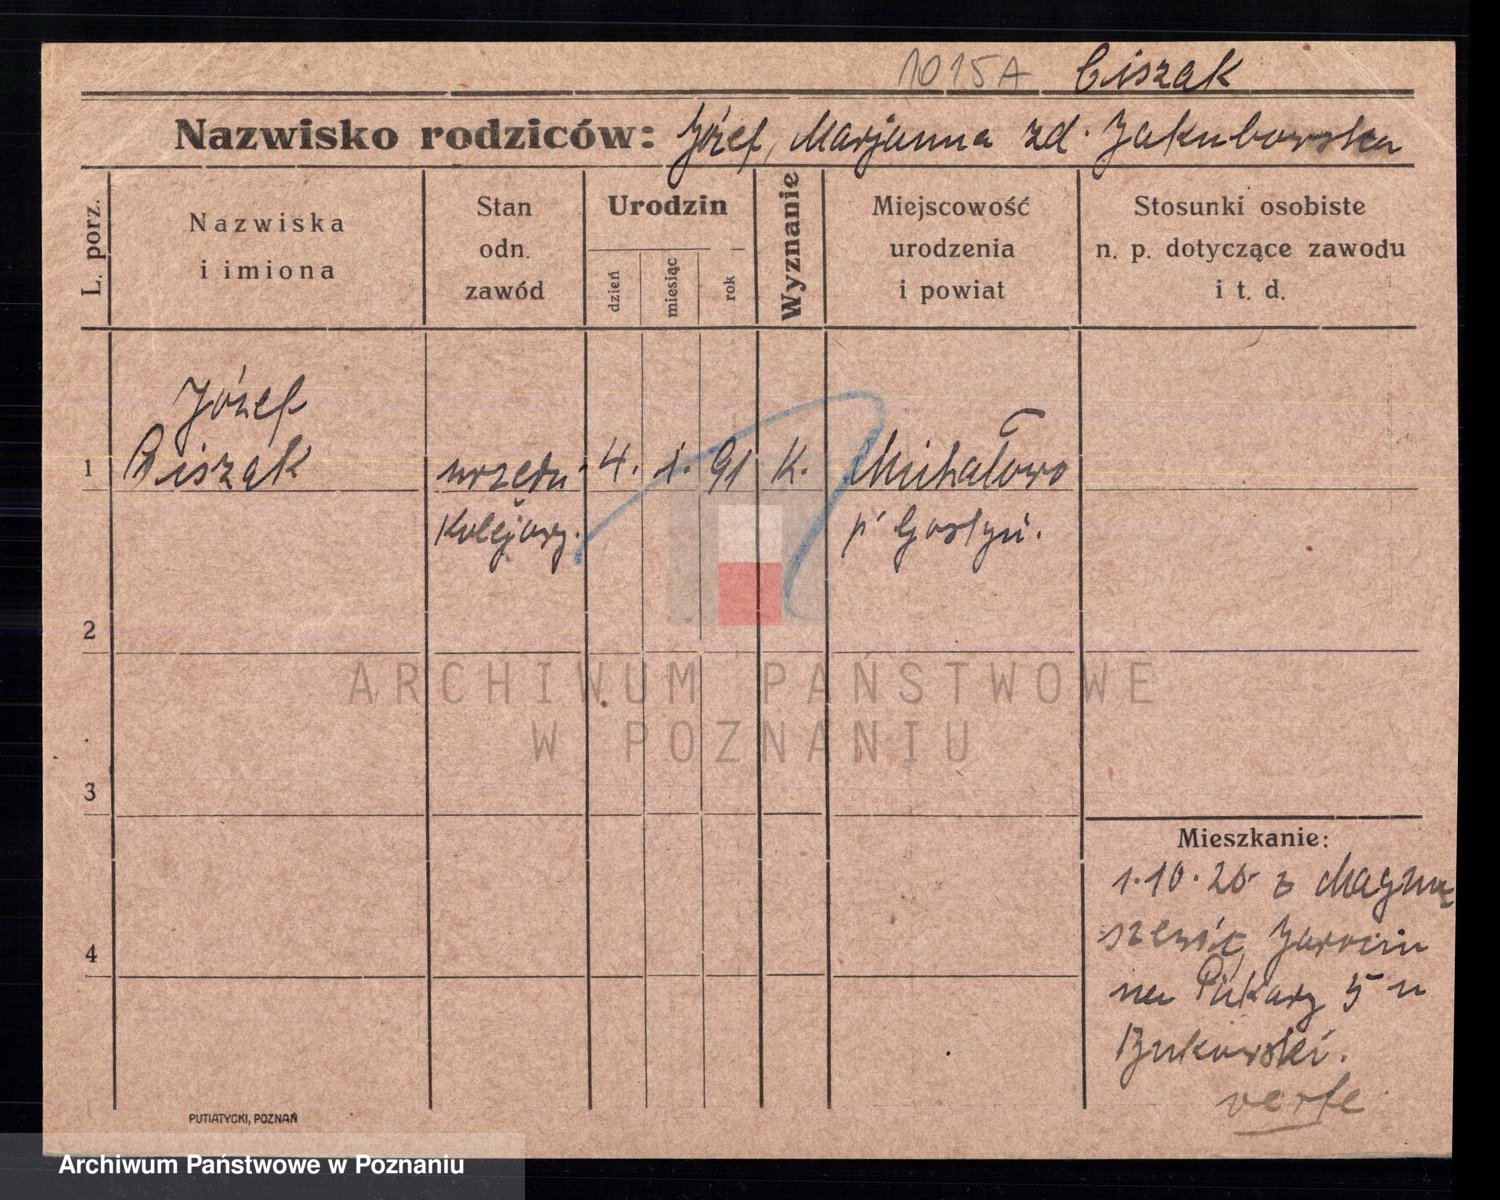 1015A Ciszak
Nazwisko rodziców: Józef, Marjanna zd. Jakubowska
L. porz.
Nazwiska
i imiona
Stan
odn.
zawód
Urodzin
dzień
miesiąc
rok
Wyznanie
Miejscowość
urodzenia
i powiat
Stosunki osobiste
n. p. dotyczące zawodu
i t. d.
Józef
1 Ciszak urzędn. 4. 1. 91 K. Michałowo
Kolejowy. p. Gostyń.
2
3
4
Mieszkanie:
1.10.26 z
Jarocin
na Piekary 5 u
Bukowski.
verte
PUTIATYCKI, POZNAŃ
ARCHIWUM PAŃSTWOWE
W POZNANIU
Archiwum Państwowe w Poznaniu